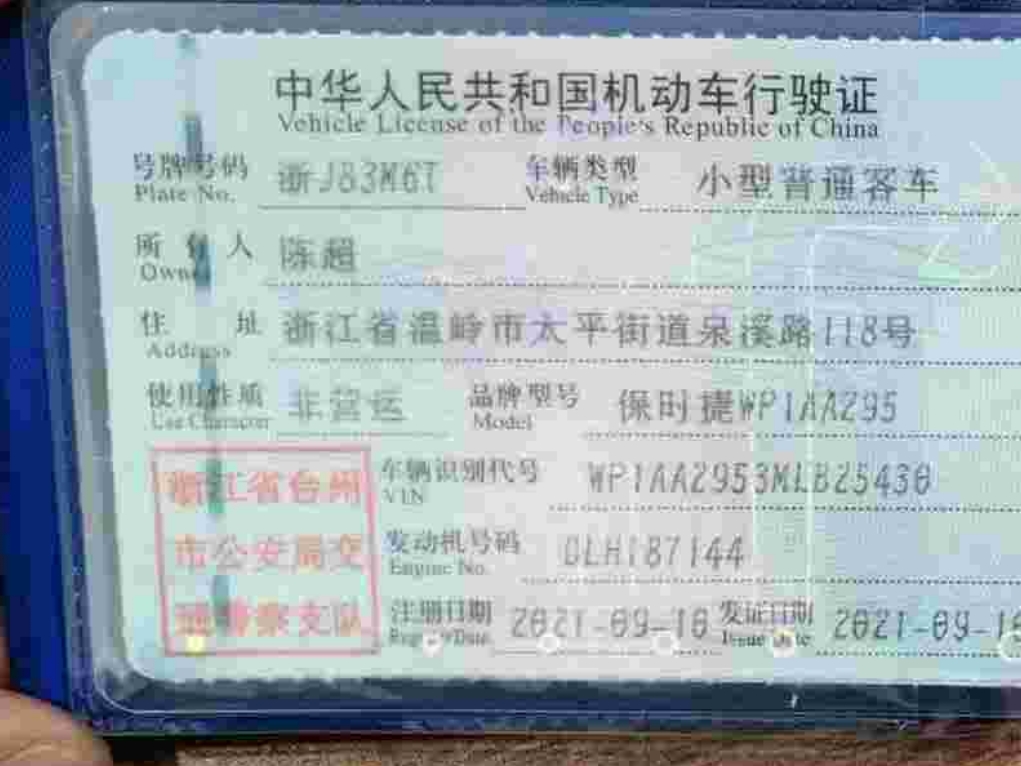 中华人民共和国机动车行驶证
Vehicle License of the People's Republic of China
号牌号码 浙J83M6T 车辆类型 小型普通客车
Plate No. Vehicle Type
所有人 陈超
Owner
住址 浙江省温岭市太平街道呆溪路118号
Address
使用性质 非营运 品牌型号 保时捷WP1AAZ95
Use Character Model
浙江省台州 车辆识别代号 WP1AAZ953MLB25430
VIN
市公安局交 发动机号码 DLH187144
Engine No.
通警察支队 注册日期 2021-09-10 发证日期 2021-09-10
Register Date Issue Date